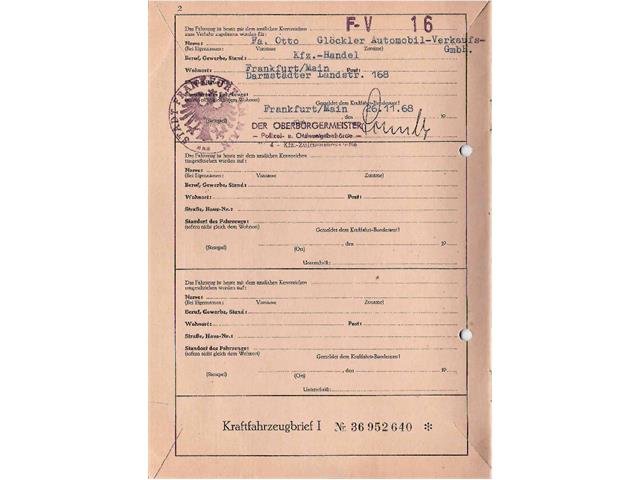 2
Das Fahrzeug ist heute mit dem amtlichen Kennzeichen F-V 16
zum Verkehr zugelassen worden für:
Name: Fa. Otto Glöckler Automobil-Verkaufs-
(Bei Eigennamen: Vorname Zuname) GmbH.
Beruf, Gewerbe, Stand: Kfz.-Handel
Wohnort: Frankfurt/Main
Darmstädter Landstr. 168
Standort des Fahrzeugs:
Gemeldet dem Kraftfahrt-Bundesamt!
Frankfurt/Main, den 26.11.68
(Stempel)
STADT FRANKFURT MAIN
DER OBERBÜRGERMEISTER
– Polizei- u. Ordnungsbehörde –
Das Fahrzeug ist heute mit dem amtlichen Kennzeichen
umgeschrieben worden auf:
Name:
(Bei Eigennamen: Vorname Zuname)
Beruf, Gewerbe, Stand:
Wohnort: Post:
Straße, Haus-Nr.:
Standort des Fahrzeugs:
(sofern nicht gleich dem Wohnort) Gemeldet dem Kraftfahrt-Bundesamt!
, den 19
(Stempel) (Ort)
Unterschrift:
Das Fahrzeug ist heute mit dem amtlichen Kennzeichen
umgeschrieben worden auf:
Name:
(Bei Eigennamen: Vorname Zuname)
Beruf, Gewerbe, Stand:
Wohnort: Post:
Straße, Haus-Nr.:
Standort des Fahrzeugs:
(sofern nicht gleich dem Wohnort) Gemeldet dem Kraftfahrt-Bundesamt!
, den 19
(Stempel) (Ort)
Unterschrift:
Kraftfahrzeugbrief I № 36952640 *